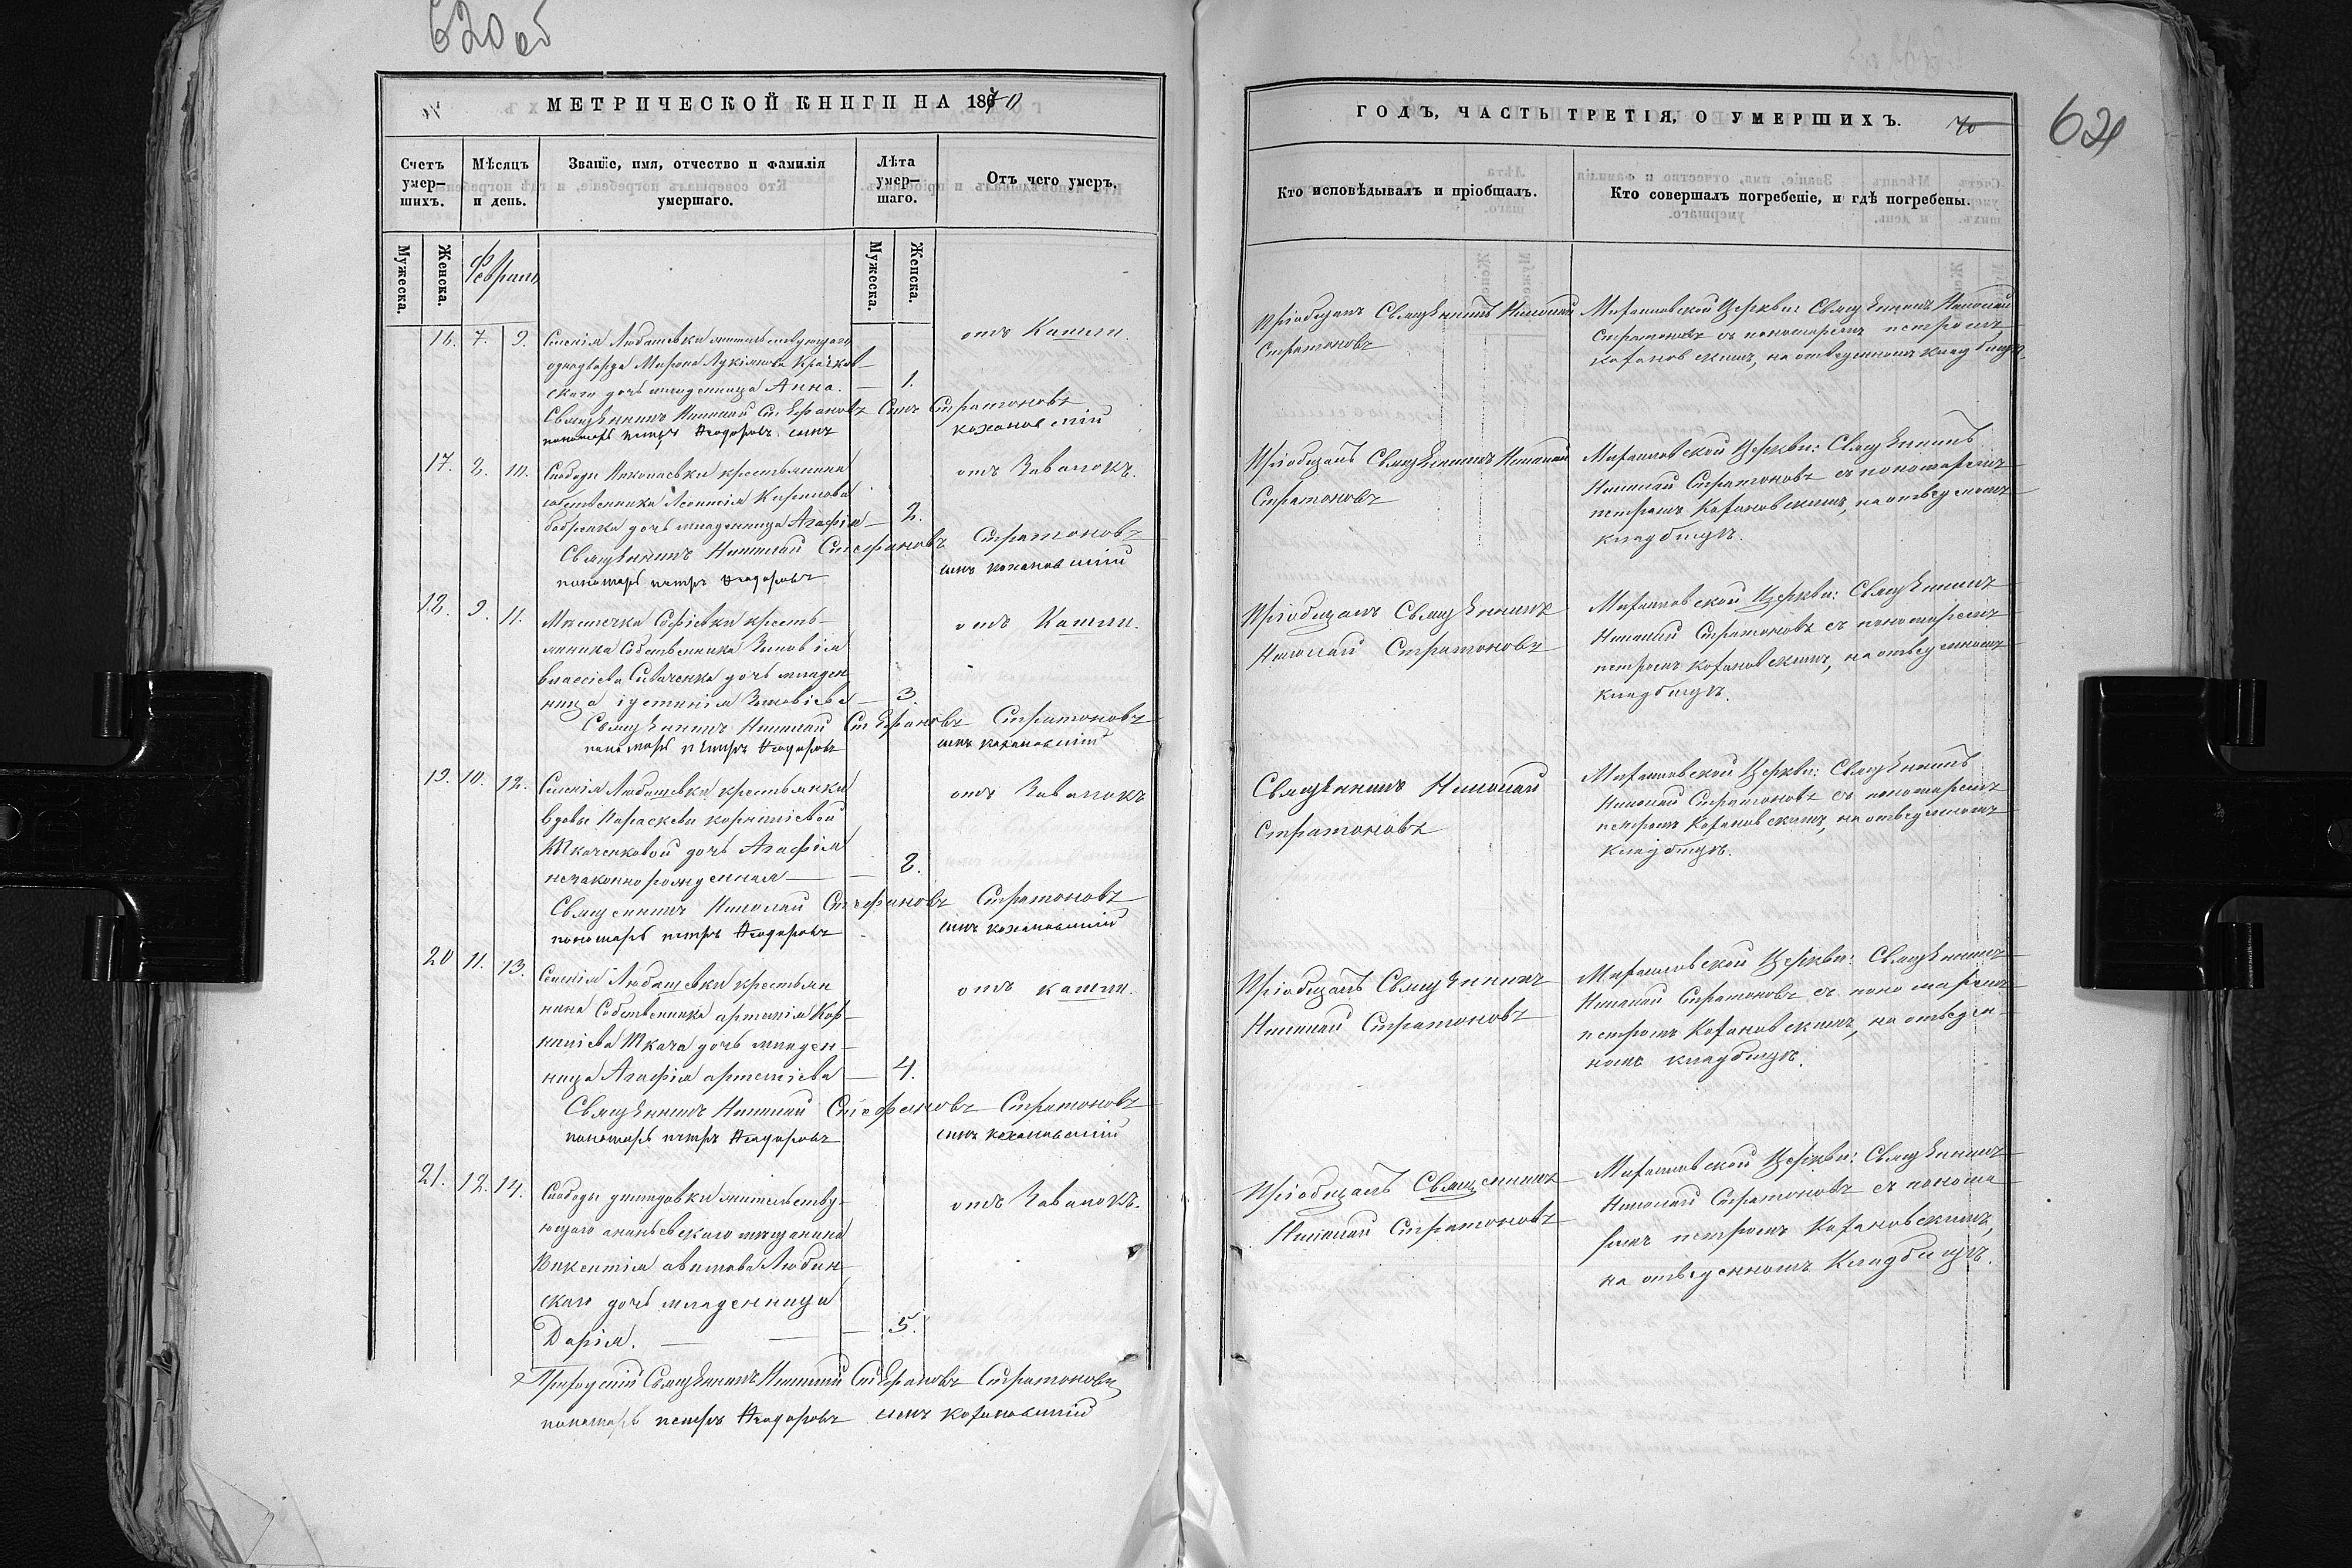 620 об
МЕТРИЧЕСКОЙ КНИГИ НА 1870
Счетъ умер-шихъ.
Мѣсяцъ и день.
Званіе, имя, отчество и фамилія умершаго.
Лѣта умер-шаго.
Отъ чего умеръ.
Мужеска.
Женска.
Февраль
Мужеска.
Женска.
16. 7. 9. Селенія Любашевки жительствующаго
отъ Кашля.
однодворца Мирона Лукіянова Крачков-
скаго дочь младенница Анна. — 1.
Священникъ Николай Стефановъ Сынъ Стратоновъ
пономарь петръ Ѳеодоровъ сынъ кохановскій
17. 8. 10. Слободы Николаевки крестьянина
отъ Завалокъ.
собственника Леонтія Кирилова
бобренка дочь младенница Агафія — 2.
Священникъ Николай Стефановъ Стратоновъ
пономарь петръ Ѳеодоровъ сынъ кохановскій
18. 9. 11. Мѣстечка Софіевки кресть-
отъ Кашля.
янина Собственника Зиновія
власіева Сиваченка дочь младен-
ница іустинія Зиновіева — 3.
Священникъ Николай Стефановъ Стратоновъ
пономарь петръ Ѳеодоровъ сынъ кохановскій
19. 10. 12. Селенія Любашевки крестьянки
отъ Завалокъ
вдовы Параскевы корниліевой
Ткаченковой дочь Агафія
незаконнорожденная — 2.
Священникъ Николай Стефановъ Стратоновъ
пономарь петръ Ѳеодоровъ сынъ кохановскій
20 11. 13. Селенія Любашевки крестьян
отъ кашля.
нина Собственника артемія Кор-
нилієва Ткача дочь младен-
ница Агафія артеміева — 4.
Священникъ Николай Стефановъ Стратоновъ
пономарь петръ Ѳеодоровъ сынъ кохановскій
21. 12. 14. Слободы жительству-
отъ Завалокъ.
ющаго ананьевскаго мещанина
Викентія Любин-
скаго дочь младенница
Дарія. — — 5.
Приходскій Священникъ Николай Стефановъ Стратоновъ
пономарь петръ Ѳеодоровъ сынъ кохановскій
ГОДЪ, ЧАСТЬ ТРЕТІЯ, О УМЕРШИХЪ.
70
621
Кто исповѣдывалъ и пріобщалъ.
Кто совершалъ погребеніе, и гдѣ погребены.
Пріобщалъ Священникъ Николай
Стратоновъ
Михаиловской Церкви: Священникъ Николай
Стратоновъ съ пономаремъ петромъ
кохановскимъ, на отведенномъ кладбищѣ.
Пріобщалъ Священникъ Николай
Стратоновъ
Михаиловской Церкви: Священникъ
Николай Стратоновъ съ пономаремъ
петромъ Кохановскимъ, на отведенномъ
кладбищѣ.
Пріобщалъ Священникъ
Николай Стратоновъ
Михаиловской Церкви: Священникъ
Николай Стратоновъ съ пономаремъ
петромъ кохановскимъ, на отведенномъ
кладбищѣ.
Священникъ Николай
Стратоновъ
Михаиловской Церкви: Священникъ
Николай Стратоновъ съ пономаремъ
петромъ кохановскимъ, на отведенномъ
кладбищѣ.
Пріобщалъ Священникъ
Николай Стратоновъ
Михаиловской Церкви: Священникъ
Николай Стратоновъ съ пономаремъ
петромъ Кохановскимъ, на отведен-
номъ кладбищѣ.
Пріобщалъ Священникъ
Николай Стратоновъ
Михаиловской Церкви: Священникъ
Николай Стратоновъ съ понома-
ремъ петромъ Кохановскимъ,
на отведенномъ Кладбищѣ.